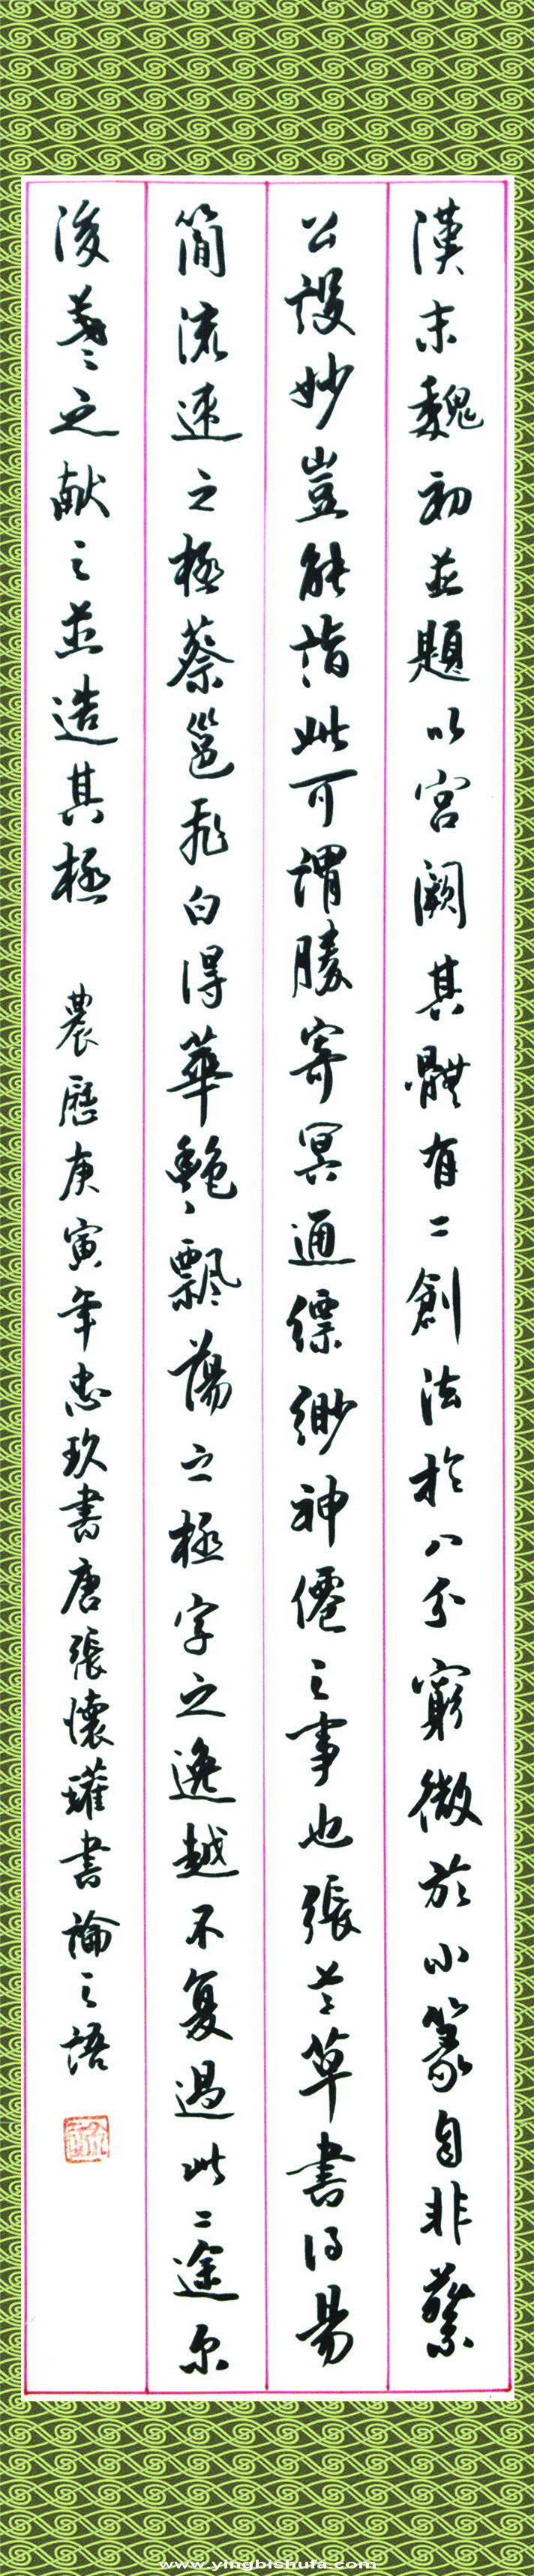 漢末魏初並題以宮闕其體有二創法於八分窮微於小篆自非蔡
公設妙豈能詣此可謂勝寄冥通縹緲神僊之事也張芝草書得易
簡流速之極蔡邕飛白得華艷飄蕩之極字之逸越不复過此二途尔
後羲之献之並造其極 農歷庚寅年忠玖書唐張懷瓘書論之語
www.yingbishufa.com